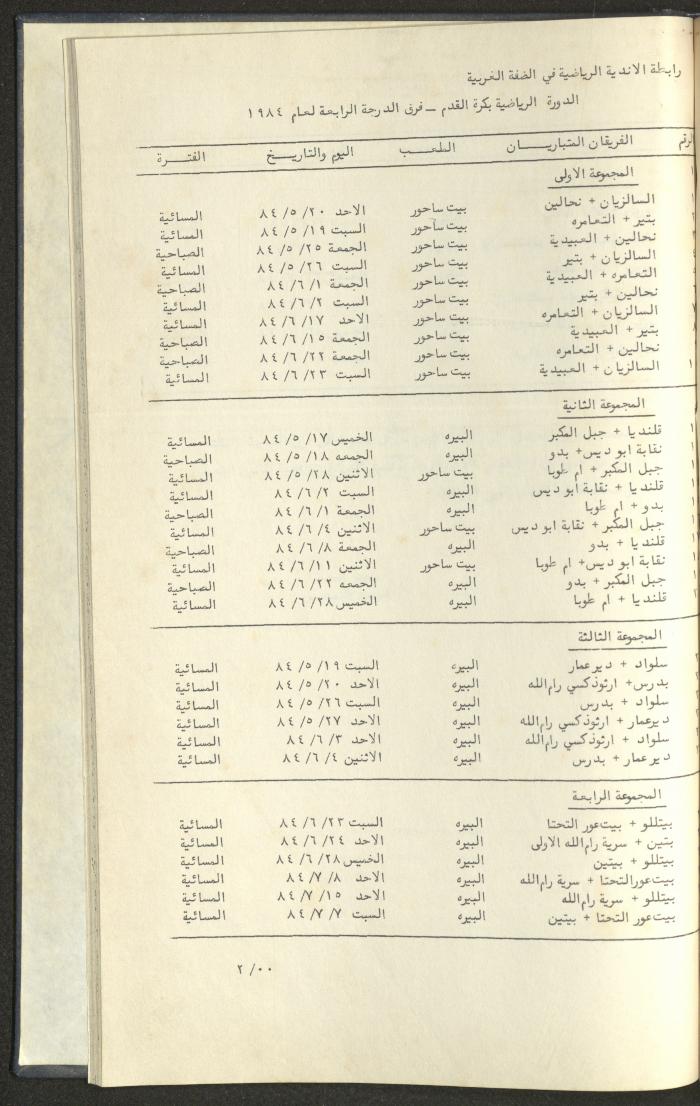 رابطة الاندية الرياضية في الضفة الغربية
الدورة الرياضية بكرة القدم ــ فرق الدرجة الرابعة لعام ١٩٨٤
الرقم الفريقان المتباريـــــان الملعـــب اليوم والتاريـــخ الفتـــرة
المجموعة الاولى
السالزيان + نحالين بيت ساحور الاحد ٢٠/ ٥/ ٨٤ المسائية
بتير + التعامره بيت ساحور السبت ١٩/ ٥/ ٨٤ المسائية
نحالين + العبيدية بيت ساحور الجمعة ٢٥/ ٥/ ٨٤ الصباحية
السالزيان + بتير بيت ساحور السبت ٢٦/ ٥/ ٨٤ المسائية
التعامره + العبيدية بيت ساحور الجمعة ١/ ٦/ ٨٤ الصباحية
نحالين + بتير بيت ساحور السبت ٢/ ٦/ ٨٤ المسائية
السالزيان + التعامره بيت ساحور الاحد ١٧/ ٦/ ٨٤ المسائية
بتير + العبيدية بيت ساحور الجمعة ١٥/ ٦/ ٨٤ الصباحية
نحالين + التعامره بيت ساحور الجمعة ٢٢/ ٦/ ٨٤ الصباحية
السالزيان + العبيدية بيت ساحور السبت ٢٣/ ٦/ ٨٤ المسائية
المجموعة الثانية
قلنديا + جبل المكبر البيره الخميس ١٧/ ٥/ ٨٤ المسائية
نقابة ابو ديس+ بدو البيره الجمعه ١٨/ ٥/ ٨٤ الصباحية
جبل المكبر + ام طوبا بيت ساحور الاثنين ٢٨/ ٥/ ٨٤ المسائية
قلنديا + نقابة ابو ديس البيره السبت ٢/ ٦/ ٨٤ المسائية
بدو + ام طوبا البيره الجمعة ١/ ٦/ ٨٤ الصباحية
جبل المكبر + نقابة ابو ديس بيت ساحور الاثنين ٤/ ٦/ ٨٤ المسائية
قلنديا + بدو البيره الجمعة ٨/ ٦/ ٨٤ الصباحية
نقابة ابو ديس+ ام طوبا بيت ساحور الاثنين ١١/ ٦/ ٨٤ المسائية
جبل المكبر + بدو البيره الجمعه ٢٢/ ٦/ ٨٤ الصباحية
قلنديا + ام طوبا البيره الخميس ٢٨/ ٦/ ٨٤ المسائية
المجموعة الثالثة
سلواد + دير عمار البيره السبت ١٩/ ٥/ ٨٤ المسائية
بدرس+ ارثوذكسي رام الله البيره الاحد ٢٠/ ٥/ ٨٤ المسائية
سلواد + بدرس البيره السبت ٢٦/ ٥/ ٨٤ المسائية
دير عمار + ارثوذكسي رام الله البيره الاحد ٢٧/ ٥/ ٨٤ المسائية
سلواد + ارثوذكسي رام الله البيره الاحد ٣/ ٦/ ٨٤ المسائية
دير عمار + بدرس البيره الاثنين ٤/ ٦/ ٨٤ المسائية
المجموعة الرابعة
بيتللو + بيت عور التحتا البيره السبت ٢٣/ ٦/ ٨٤ المسائية
بتين + سرية رام الله الاولى البيره الاحد ٢٤/ ٦/ ٨٤ المسائية
بيتللو + بيتين البيره الخميس ٢٨/ ٦/ ٨٤ المسائية
بيت عور التحتا + سرية رام الله البيره الاحد ٨/ ٧/ ٨٤ المسائية
بيتللو + سرية رام الله البيره الاحد ١٥/ ٧/ ٨٤ المسائية
بيت عور التحتا + بيتين البيره السبت ٧/ ٧/ ٨٤ المسائية
٠٠/ ٢